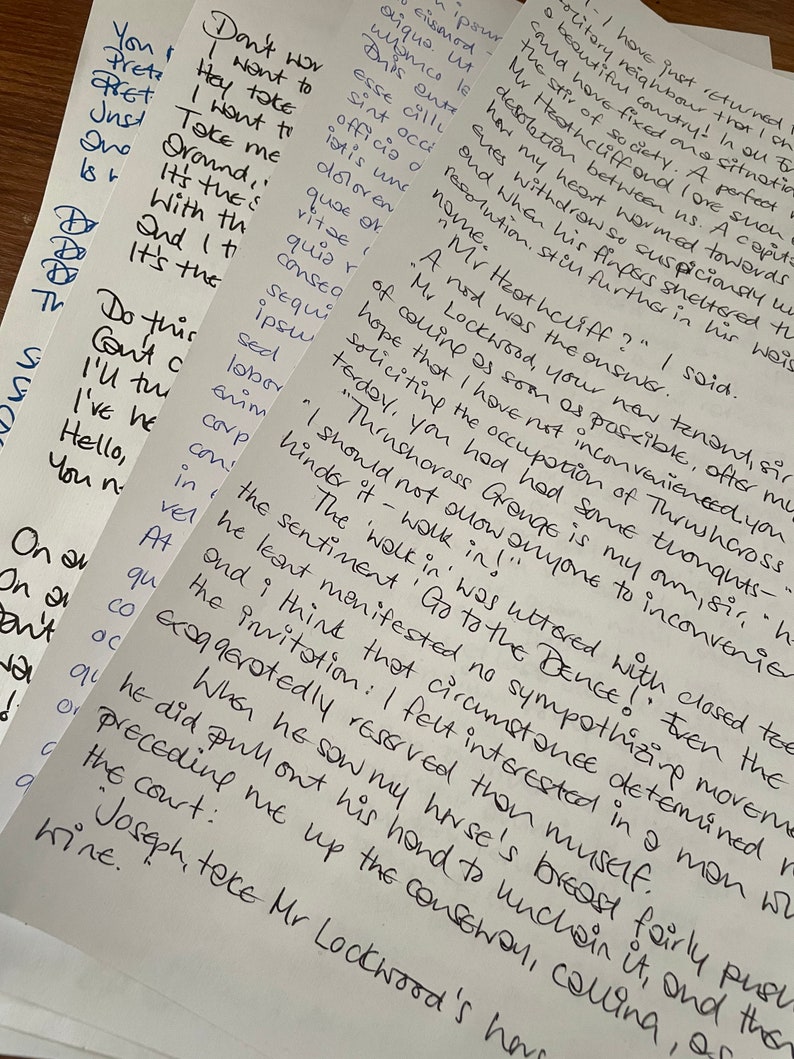 You
Pret
Pret
Just
and
Is
Don't wor
I want to
Hey take
I want t
Take me
around,
It's the s
With th
and I t
It's the
Do this
Can't c
I'll tu
I've he
Hello,
You n
On a
On a
Don't
ipsum
eiusmod
aliqua. Ut
ullamco la
Duis aute
esse cillu
sint occa
officia d
istis und
dolorem
quae ab
vitae
quia
conseq
sequi
ipsum
sed
labor
enim
corp
cons
in
vel
At
qu
co
oc
qu
1 - I have just returned
solitary neighbour that I sh
a beautiful country! In all En
could have fixed on a situatio
the stir of society. A perfect
Mr Heathcliff and I are such
desolation between us. A capita
how my heart warmed towards
eyes withdraw so suspiciously un
and when his fingers sheltered th
resolution, still further in his wais
name.
"Mr Heathcliff?" I said.
A nod was the answer.
"Mr Lockwood, your new tenant, sir
of calling as soon as possible, after my
hope that I have not inconvenienced you
soliciting the occupation of Thrushcross
terday, you had had some thoughts-"
"Thrushcross Grange is my own, sir, "h
"I should not allow anyone to inconvenien
hinder it - walk in!"
The 'walk in' was uttered with closed tee
the sentiment 'Go to the Deuce!' Even the
he leant manifested no sympathizing moveme
and i think that circumstance determined
the invitation: I felt interested in a man wh
exaggeratedly reserved than myself.
When he saw my horse's breast fairly push
he did pull out his hand to unchain it, and then
preceding me up the causeway, calling, as
the court:
"Joseph, take Mr Lockwood's hors
wine."